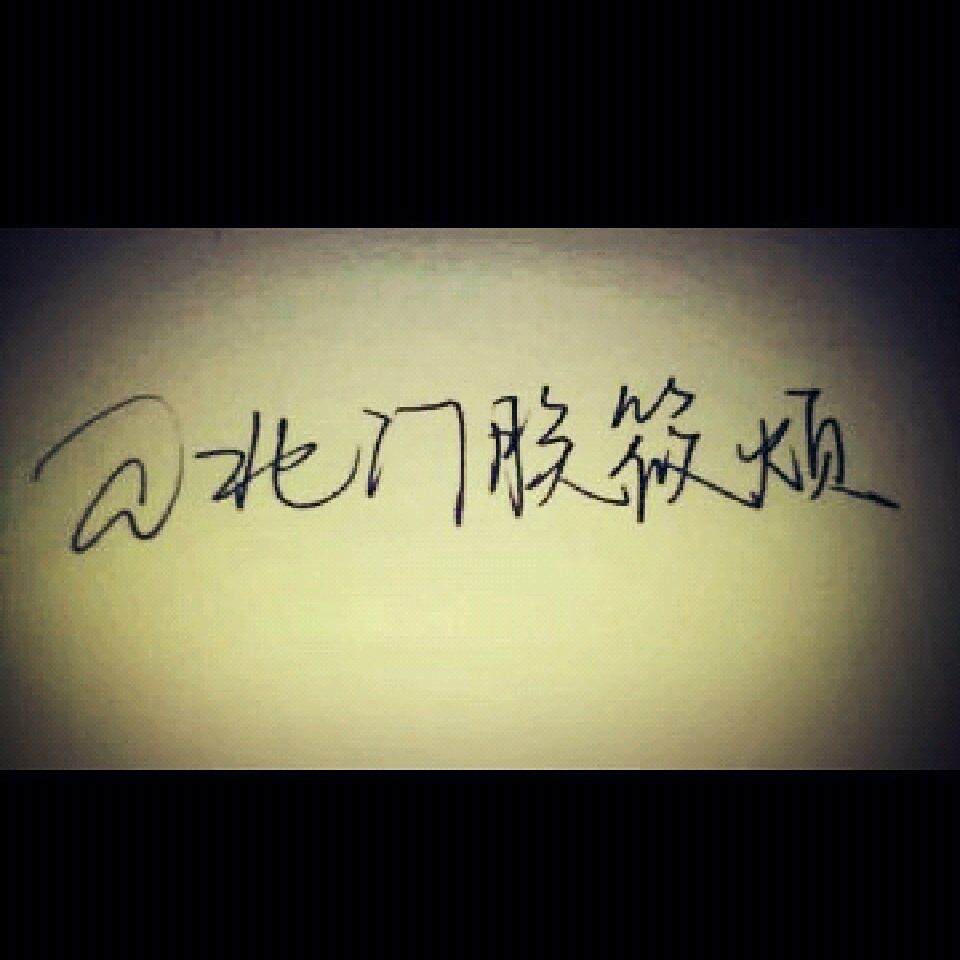 @北门朘筱烦